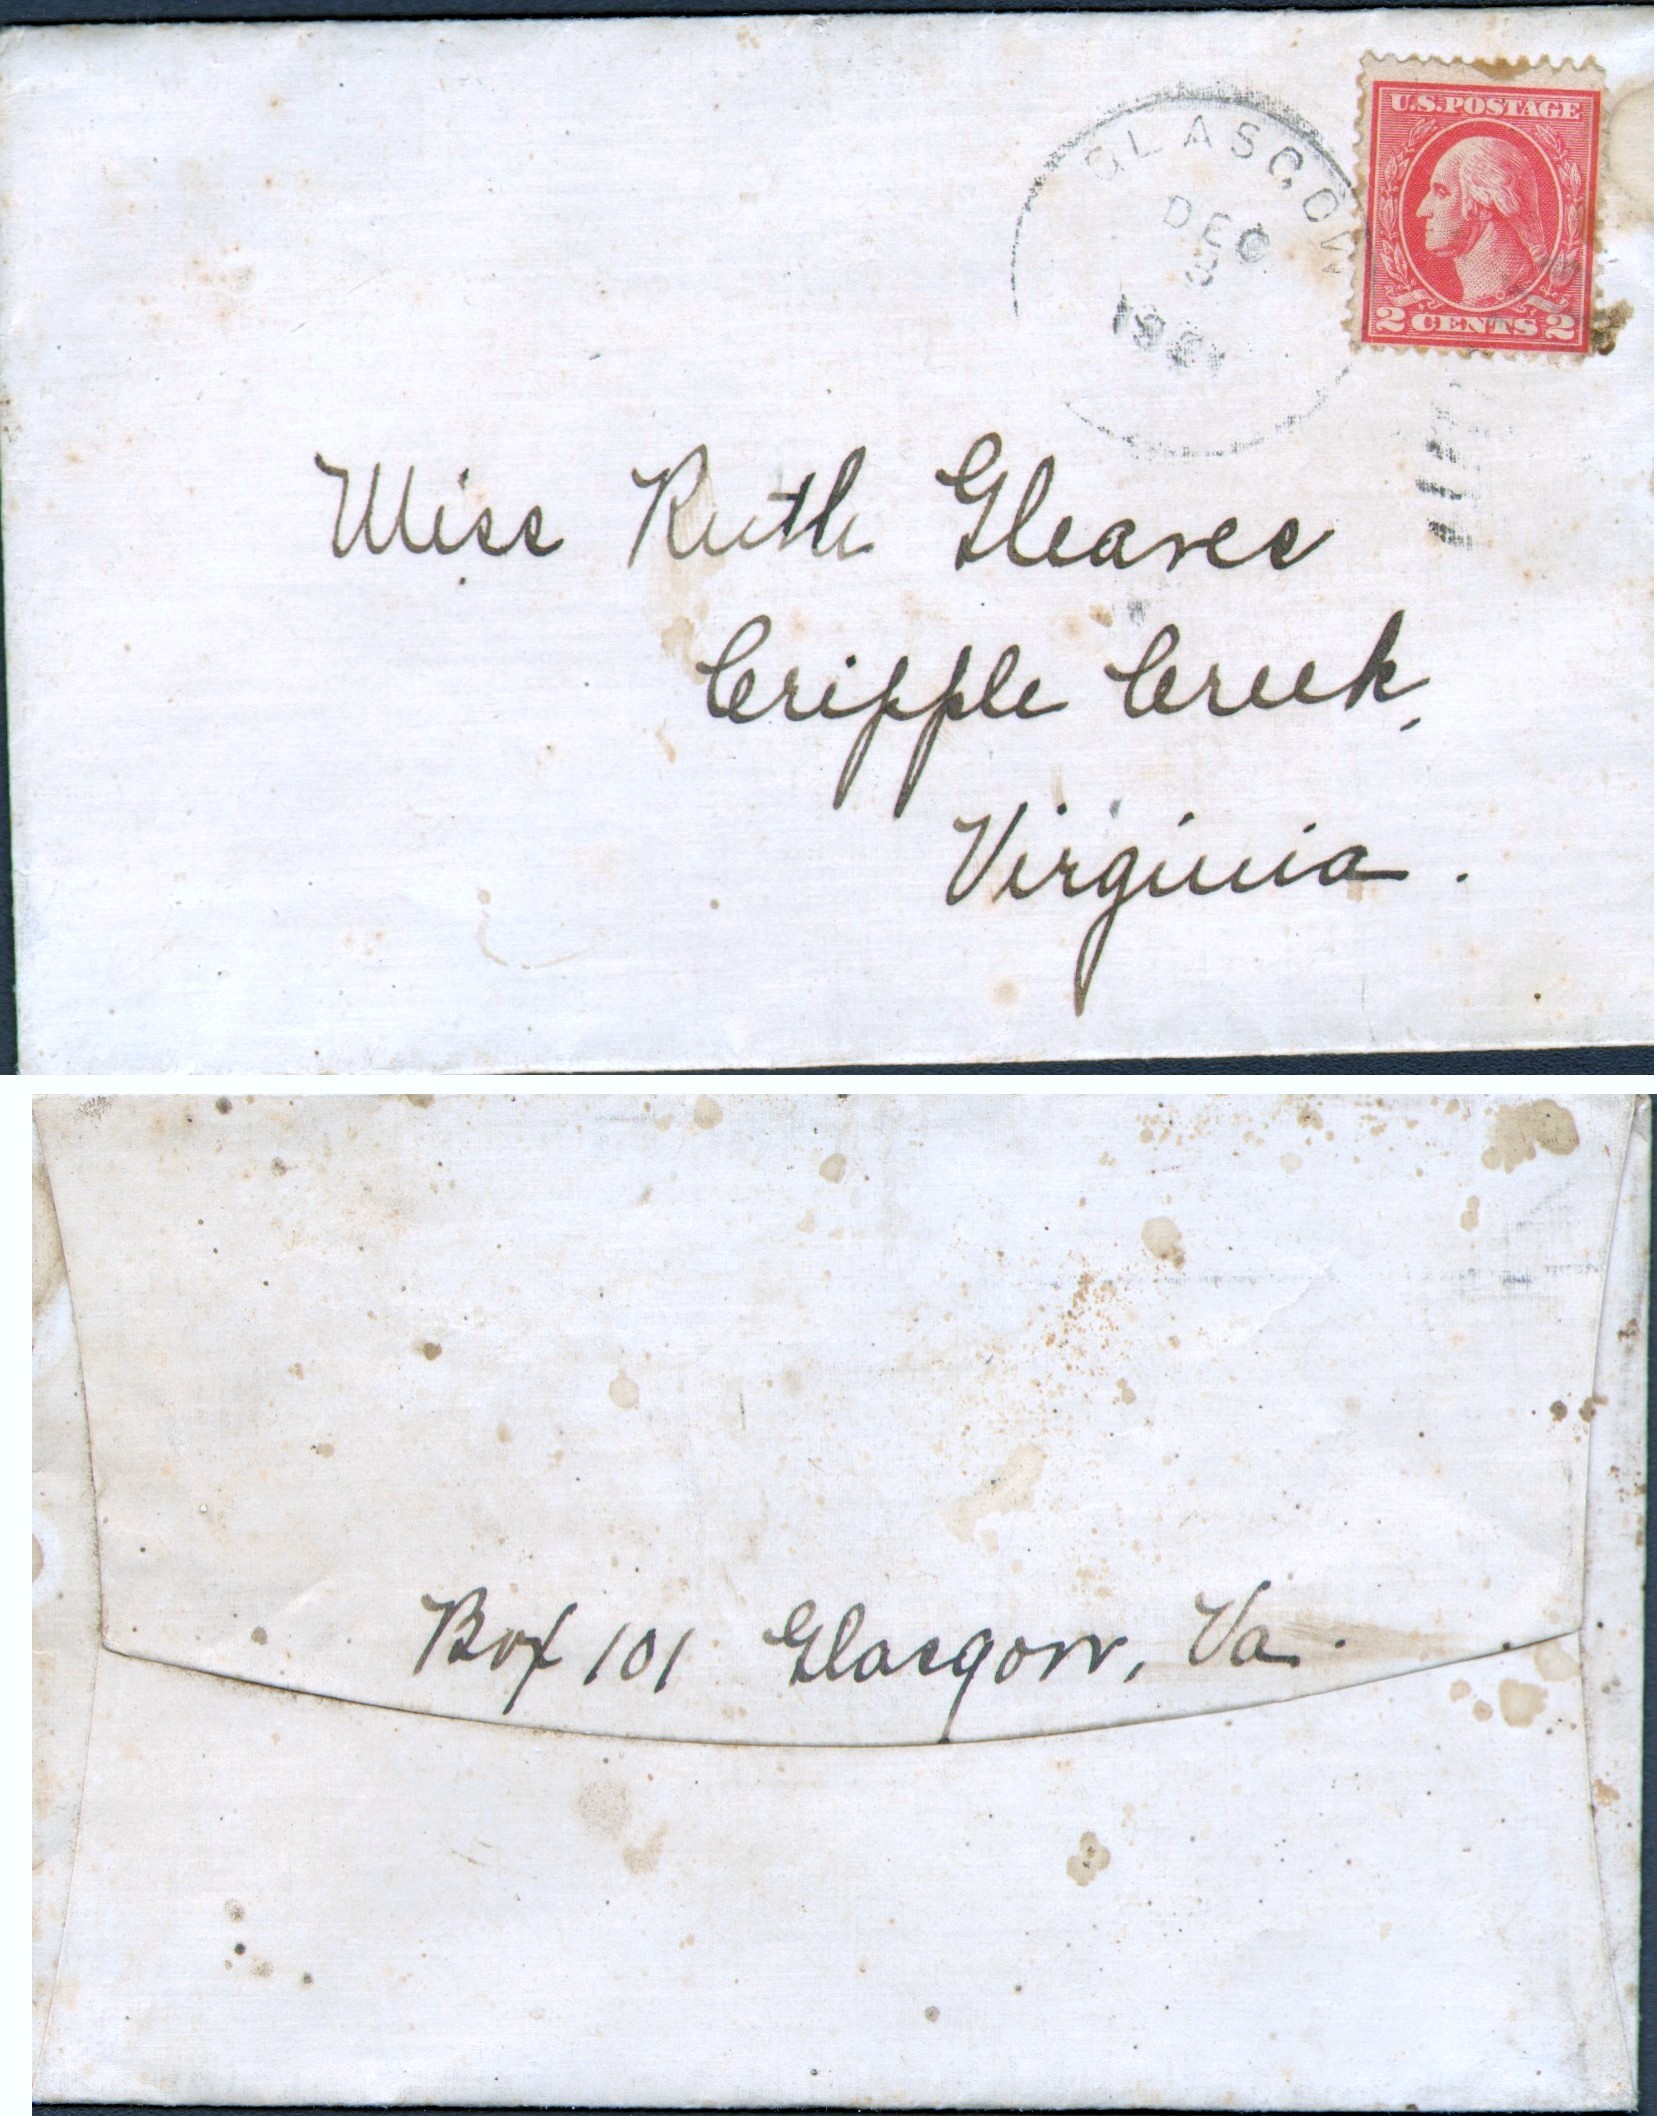 U.S. POSTAGE
GLASGOW
DEC
1921
2 CENTS 2
Miss Ruth Gleaves
Cripple Creek,
Virginia.
Box 101 Glasgow, Va.